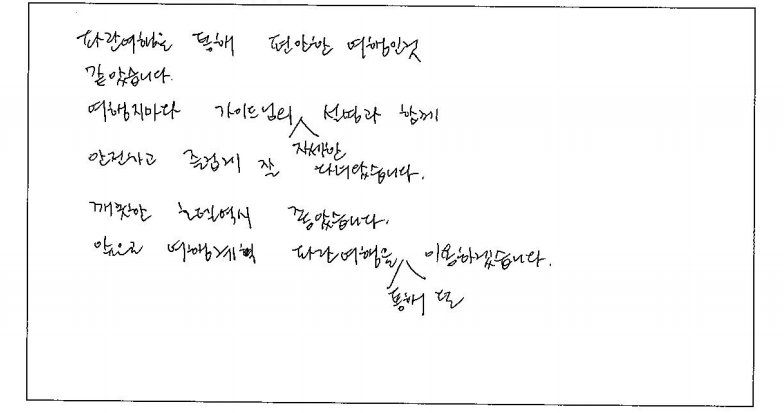 파란여행을 통해 편안한 여행인것
같았습니다.
여행지마다 가이드님의 설명과 함께
자세한
안전하고 즐겁게 잘 다녀왔습니다.
깨끗한 호텔역시 좋았습니다.
앞으로 여행계획 파란여행을 이용하겠습니다.
통해 또